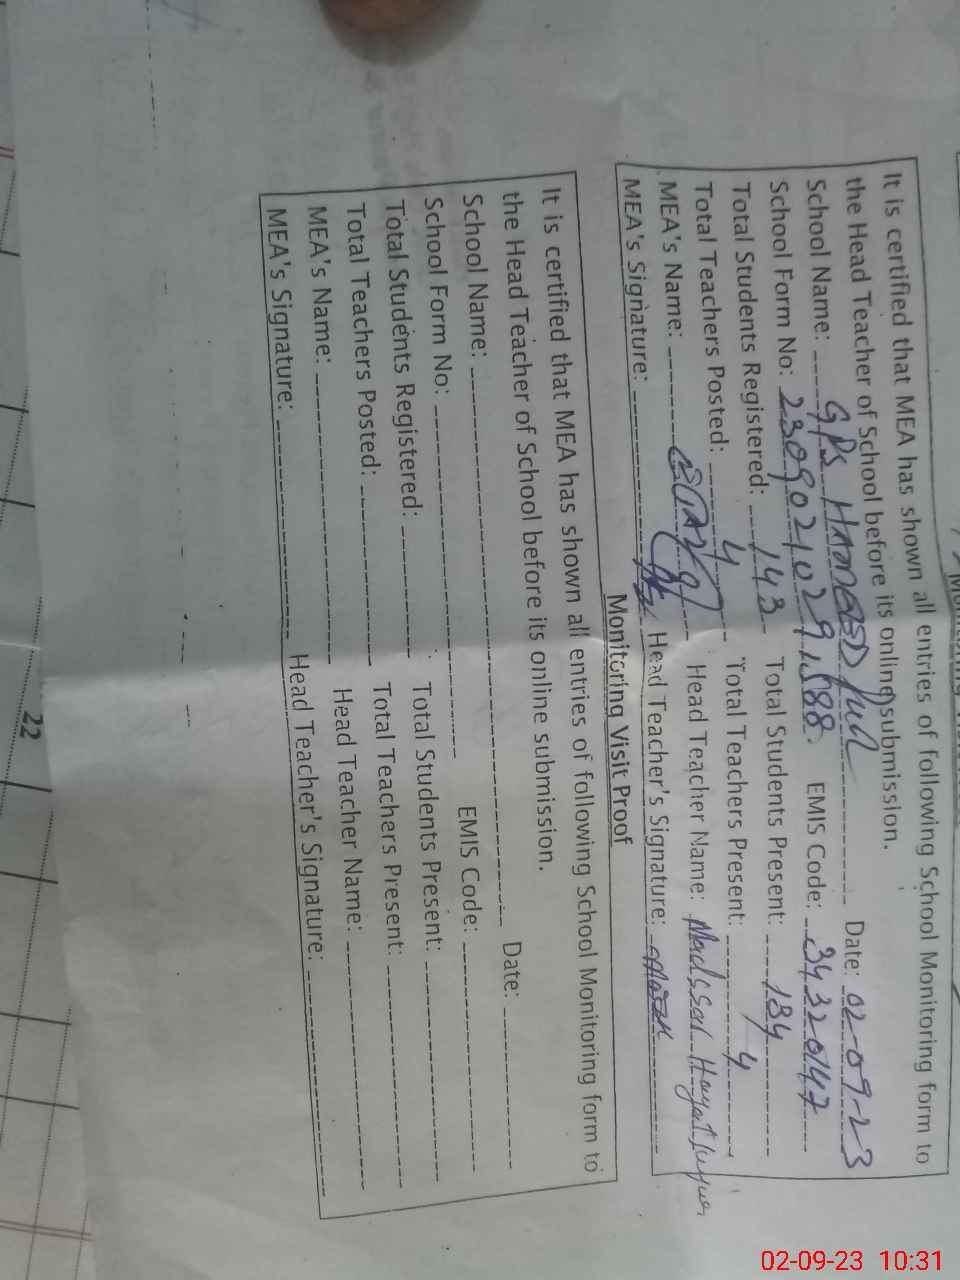 It is certified that MEA has shown all entries of following School Monitoring form to
the Head Teacher of School before its online submission.
School Name: GPS Hameed Pur Date: 02-09-23
School Form No: 23090210291588. EMIS Code: 34320147
Total Students Registered: 143 Total Students Present: 134
Total Teachers Posted: 4 Total Teachers Present: 4
MEA's Name: Head Teacher Name: Hayat
MEA's Signature: Head Teacher's Signature:
Monitoring Visit Proof
It is certified that MEA has shown all entries of following School Monitoring form to
the Head Teacher of School before its online submission.
School Name: Date:
School Form No: EMIS Code:
Total Students Registered: Total Students Present:
Total Teachers Posted: Total Teachers Present:
MEA's Name: Head Teacher Name:
MEA's Signature: Head Teacher's Signature:
22
02-09-23 10:31